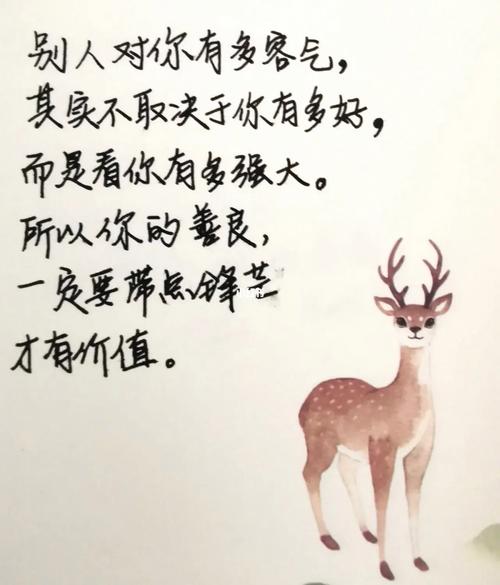 别人对你有多客气，
其实不取决于你有多好，
而是看你有多强大。
所以你的善良，
一定要带点锋芒
才有价值。